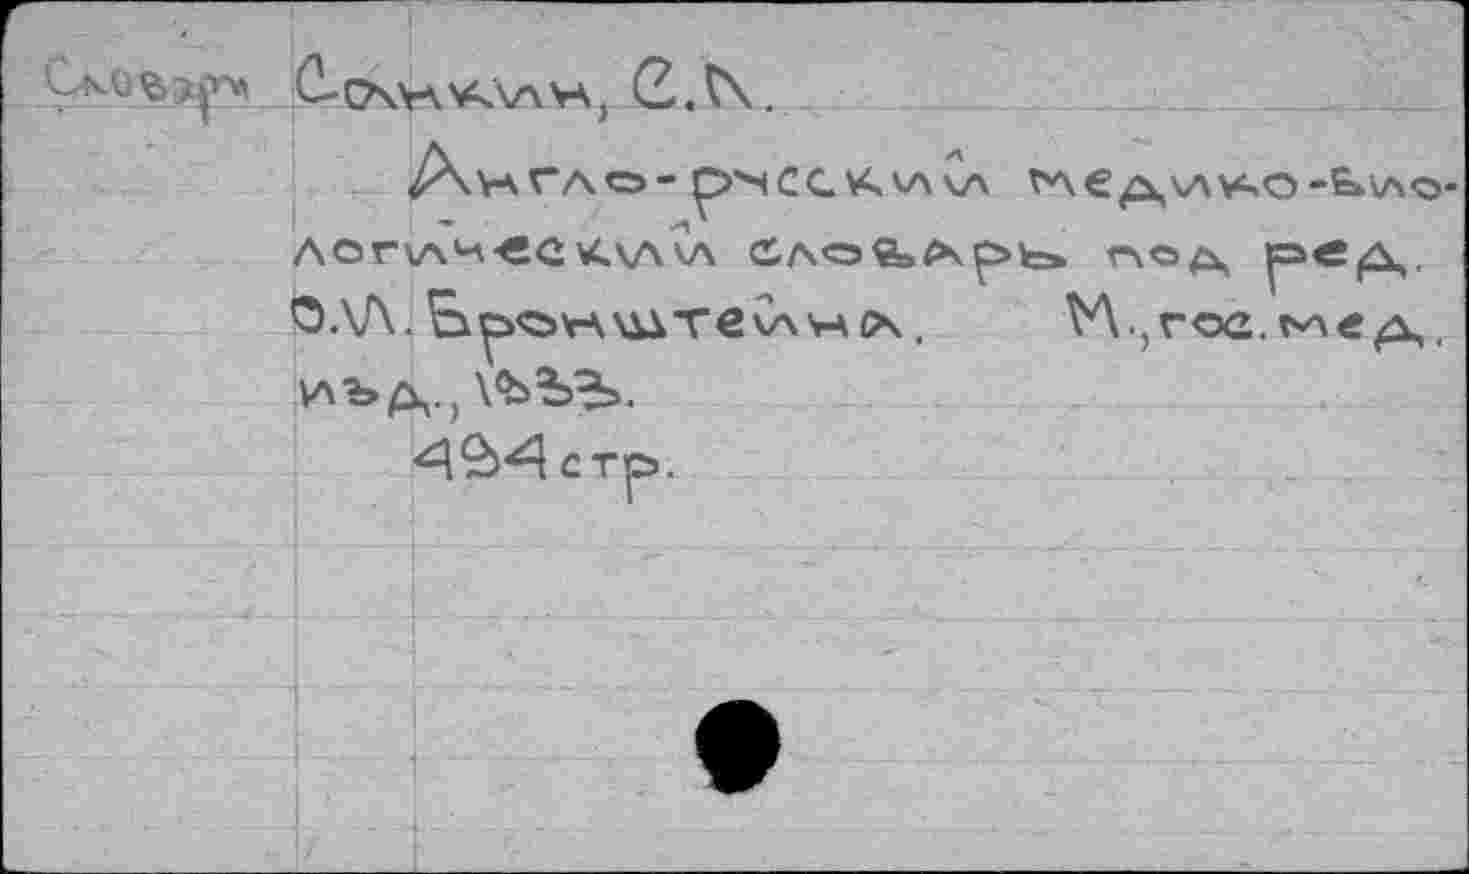 Словари Санкин, С.А.
Англо-русский медико-био-
логический словарь под ред.
О.И. Бронштейна. М., гос. мед.
изд., 1933.
484 стр.